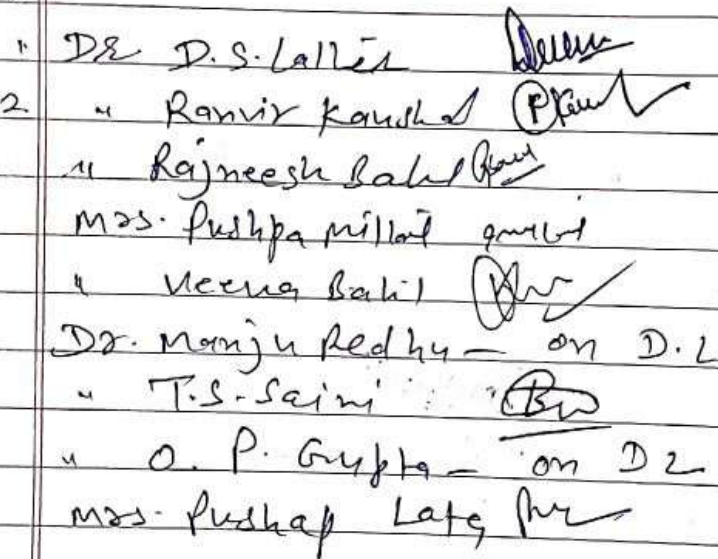 1. DR. D.S. Laller
2. " Ranvir Kaushal
" Rajneesh Bahl
Mrs. Pushpa Mittal
" Veena Bahl
Dr. Manju Redhu — on D.L
" T.S. Saini
" O. P. Gupta — on D L
Mrs. Pushap Lata